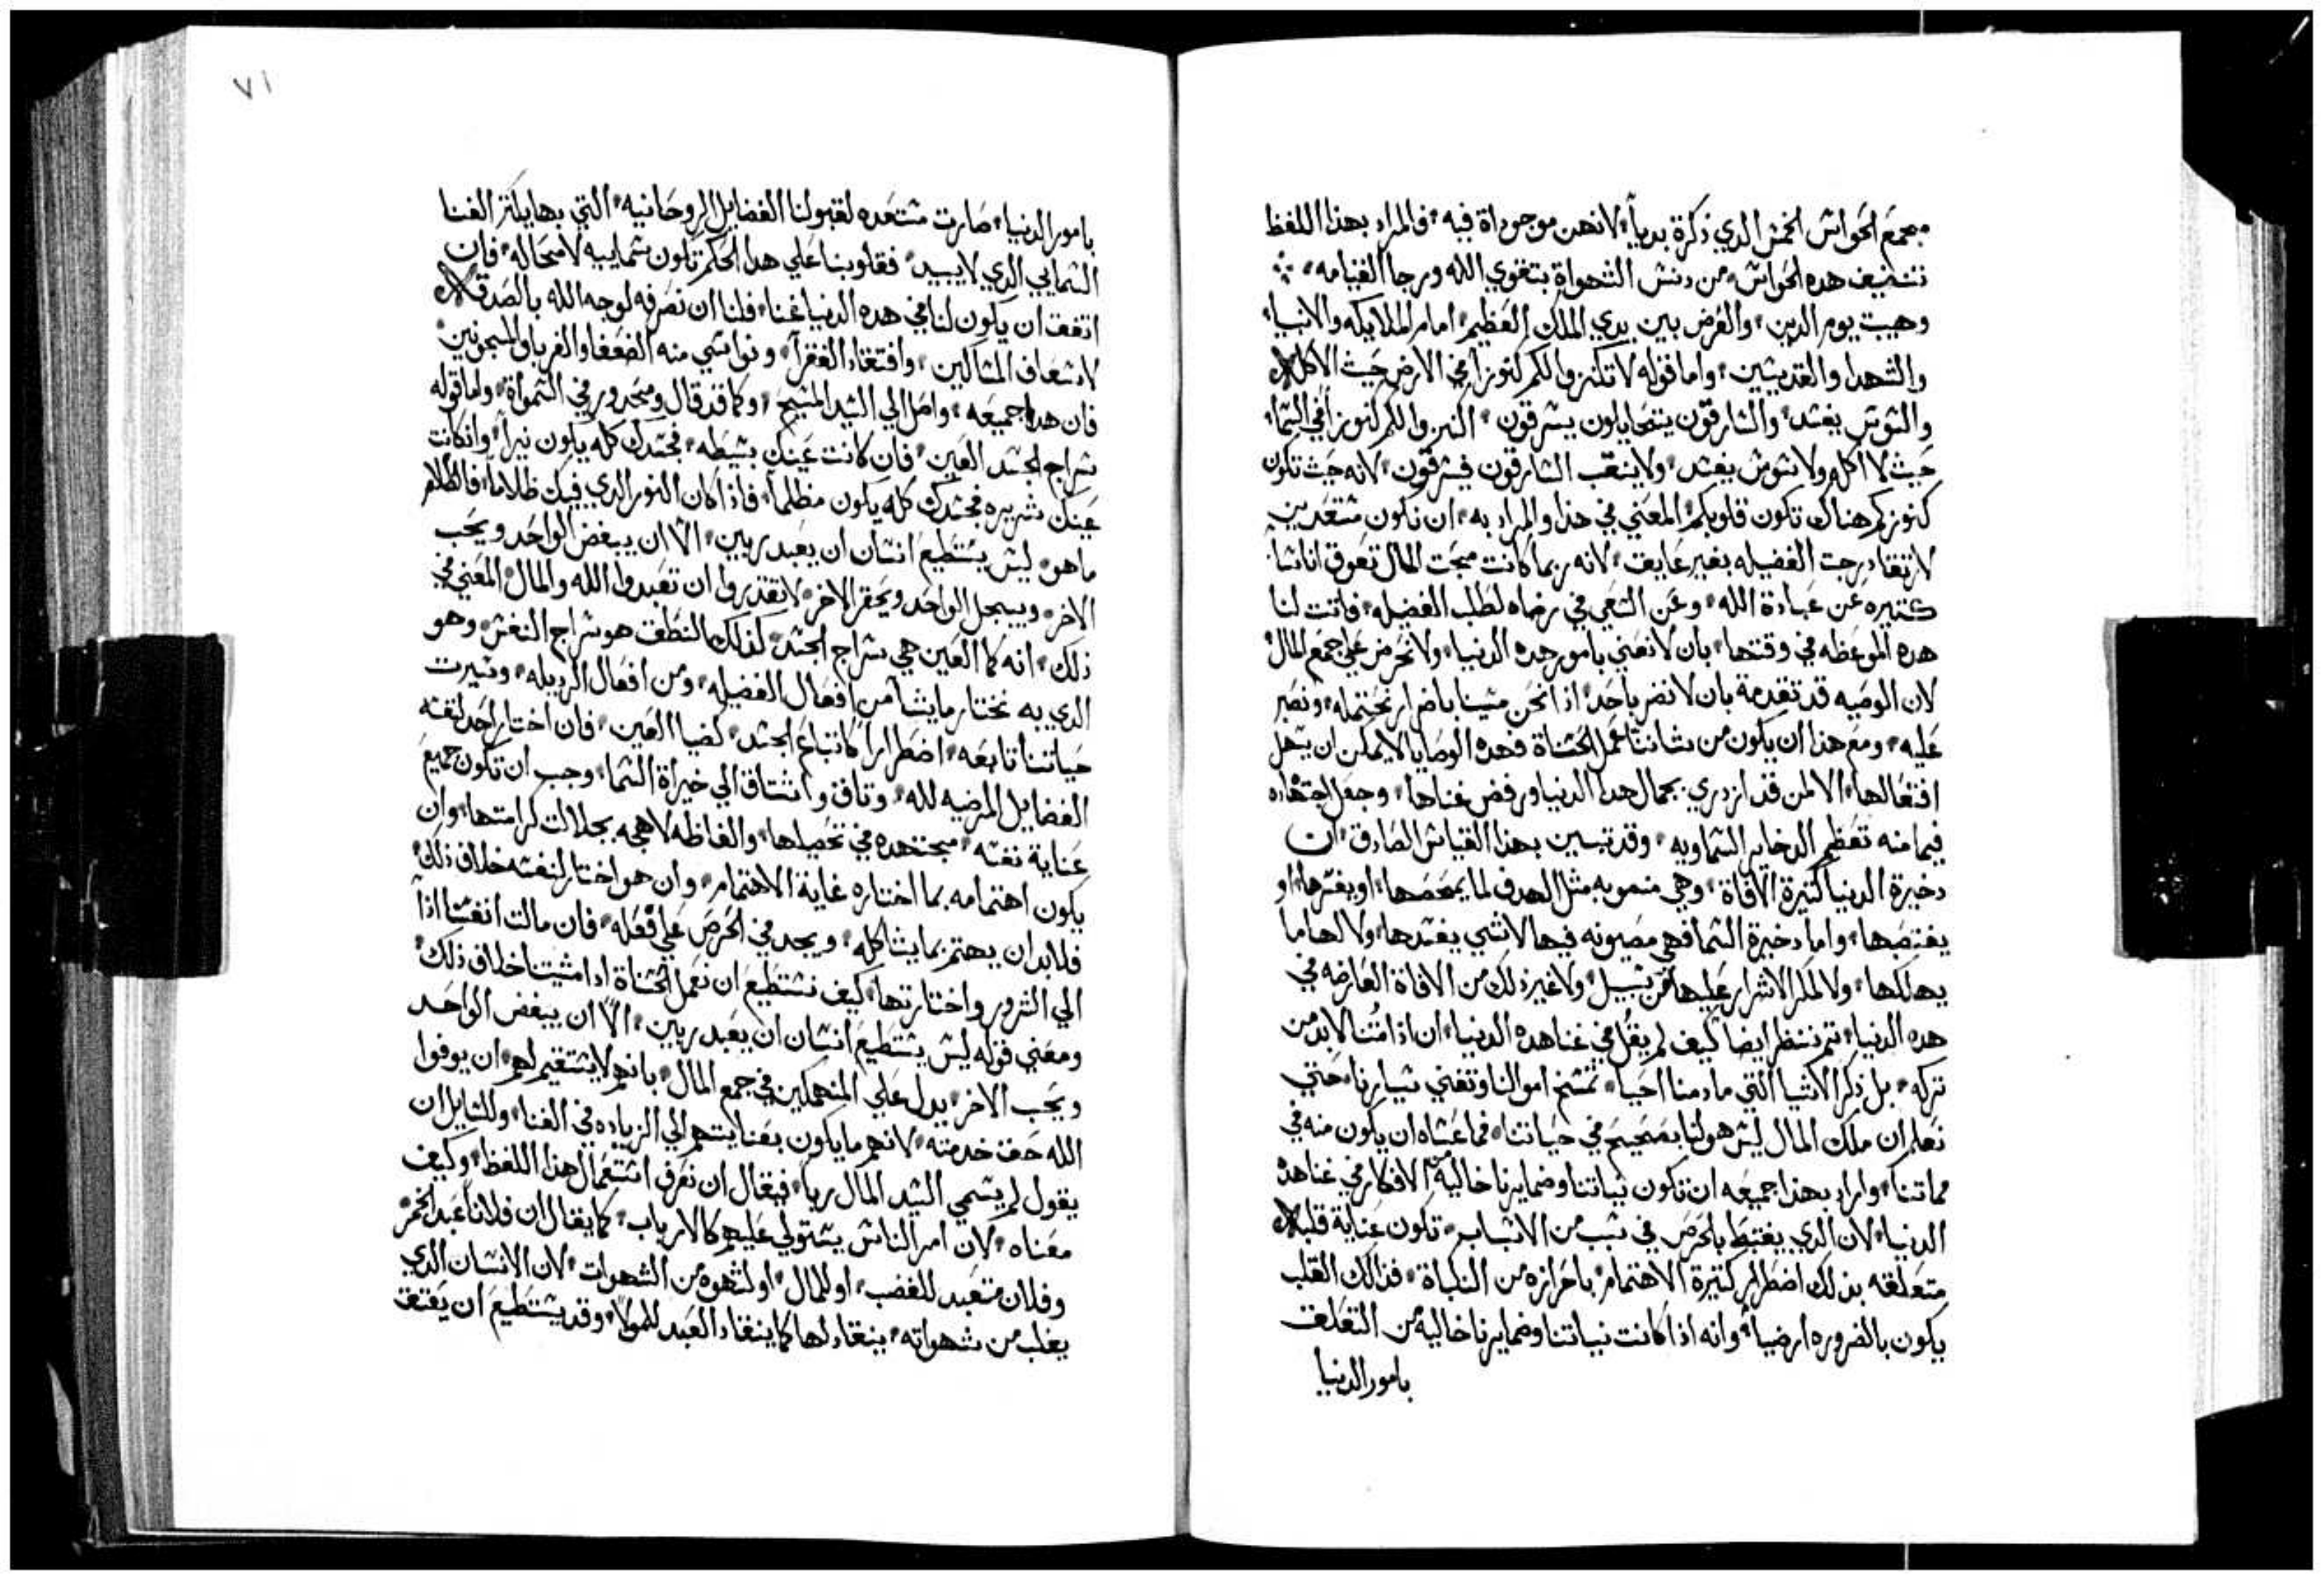 مجمع الحواس الخمس الدي ذكرة بدياً لانهن موجوداة فيه فالمراد بهذا اللفظ
تنضيف هده الحواس من دنس الشهواة بتقوي الله ورجا القيامه
وهيبت يوم الدين والعرض بين يدي الملك العظيم امام الملايكه والانبيا
والشهدا والقديسين واما قوله لا تكنزوا لكم كنوزاً في الارض حيث الاكله
والسوس يفسد والسارقون يتحايلون يسرقون اكنزوا لكم كنوزاً في السما
حيث لا اكله ولا سوس يفسد ولا ينقب السارقون فيسرقون لانه حيث تكون
كنوزكم هناك تكون قلوبكم المعني في هذا والمراد به ان نكون مستعدين
لارتقا درجت الفضيله بغير عايق لانه ربما كانت محبت المال تعوق اناسا
كتيره عن عبادة الله وعن السعي في رضاه لطلب الفضيله فاتت لنا
هده الموعظه في وقتها بان لا نعني بامور هده الدنيا ولا نحرص علي جمع المال
لان الوصيه قد تقدمة بان لا نضر باحد اذا نحن مسينا باضرار نحتمله ونصبر
عليه ومع هذا ان يكون من شاننا عمل الحسناة فهده الوصايا لا يمكن ان يسهل
افتعالها الا لمن قد ازدري بجمال هدا الدنيا ورفض غناها وجعل اجتهاده
فيما منه تعظم الدخاير السماويه وقد تبين بهذا القياس الصادق ان
دخيرة الدنيا كتيرة الافاة وهي منصوبه مثل الهدف لما يمحصها او يفسرها او
يغتصبها واما دخيرة السما فهي مصونه فيها لا شي يفسدها ولا لها ما
يهلكها ولا لمكر الاشرار عليها من سبيل ولا غير ذلك من الافاة العارضه في
هده الدنيا تم ننظر ايضا كيف لم يقل في غنا هده الدنيا ان اذا متنا لابد من
تركه بل ذكر الاشيا التي ما دمنا احيا تمسخ اموالنا وتفني سيارنا حتي
نعلم ان ملك المال ليس هو لنا بصحيح في حياتنا فما عساه ان يكون منه في
مماتنا واراد بهذا جميعه ان تكون نياتنا وضمايرنا خالية من الافكار في غنا هده
الدنيا لان الدي يغتبط بالحرص في سبب من الاسباب تكون عناية قلبه
متعلقه بذلك اضطرار كتيرة الاهتمام باحرازه من النكباة فذالك القلب
يكون بالضروره ارضيا وانه اذا كانت نياتنا وضمايرنا خالية من التعلق
بامور الدنيا
٧١
بامور الدنيا صارت مستعده لقبولنا الفضايل الروحانيه التي بها يكتر الغنا
السمايي الدي لا يبيد فقلوبنا علي هدا الحكم تكون سماييه لا محاله فان
اتفق ان يكون لنا في هده الدنيا غنا فلنا ان نصرفه لوجه الله بالصدقه
لاسعاف المساكين وافتقاد الفقرآ ونواسي منه الضعفا والغربا والمسجونين
فان هدا جميعه واصل الي السيد المسيح وكما قد قال ومحدور في السمواة واما قوله
سراج الجسد العين فان كانت عينك بسيطه فجسدك كله يكون نيراً وان كانت
عينك شريره فجسدك كله يكون مظلماً فاذا كان النور الدي فيك ظلاماً فالظلام
ما هو ليس يستطيع انسان ان يعبد ربين الا ان يبغض الواحد ويحب
الاخر ويبجل الواحد ويحقر الاخر لا تقدروا ان تعبدوا الله والمال المعني في
ذلك انه كما العين هي سراج الجسد كذلك النطق هو سراج النفس وهو
الدي به نختار ما يشا من افعال الفضيله ومن افعال الرديله وسيرت
حياتنا تابعه اضطراراً كاتباع الجسد لضيا العين فان اختار احد لنفسه
الفضايل المرضيه لله وتاق واشتاق الي خيراة السما وجب ان تكون جميع
عناية نفسه مجتهده في تحصيلها والفاظه لاهجه بجلالت كرامتها وان
يكون اهتمامه بما اختاره غاية الاهتمام وان هو اختار لنفسه خلاف ذلك
فلابد ان يهتم بما يشاكله ويجد في الحرص علي فعله فان مالت انفسنا اذاً
الي الشرور واختارتها كيف نستطيع ان نعمل الحسناة ادا مشيتنا خلاف ذلك
ومعني قوله ليس يستطيع انسان ان يعبد ربين الا ان يبغض الواحد
ويحب الاخر يدل علي المنهمكين في جمع المال بانهم لا يستقيم لهم ان يوفوا
الله حق خدمته لانهم ما يكون بغنا يتهم الي الزياده في الغنا وللسايل ان
يقول لم يسمي السيد المال ربا فيقال ان نعرف استعمال هذا اللفظ وكيف
معناه لان امر الناس يستولي عليهم كالارباب كما يقال ان فلاناً عبد الخمر
وفلان متعبد للغضب او للمال او لشهوه من الشهوات لان الانسان الدي
يغلب من شهواته ينقاد لها كما ينقاد العبد للمولا وقد يستطيع ان يعتق